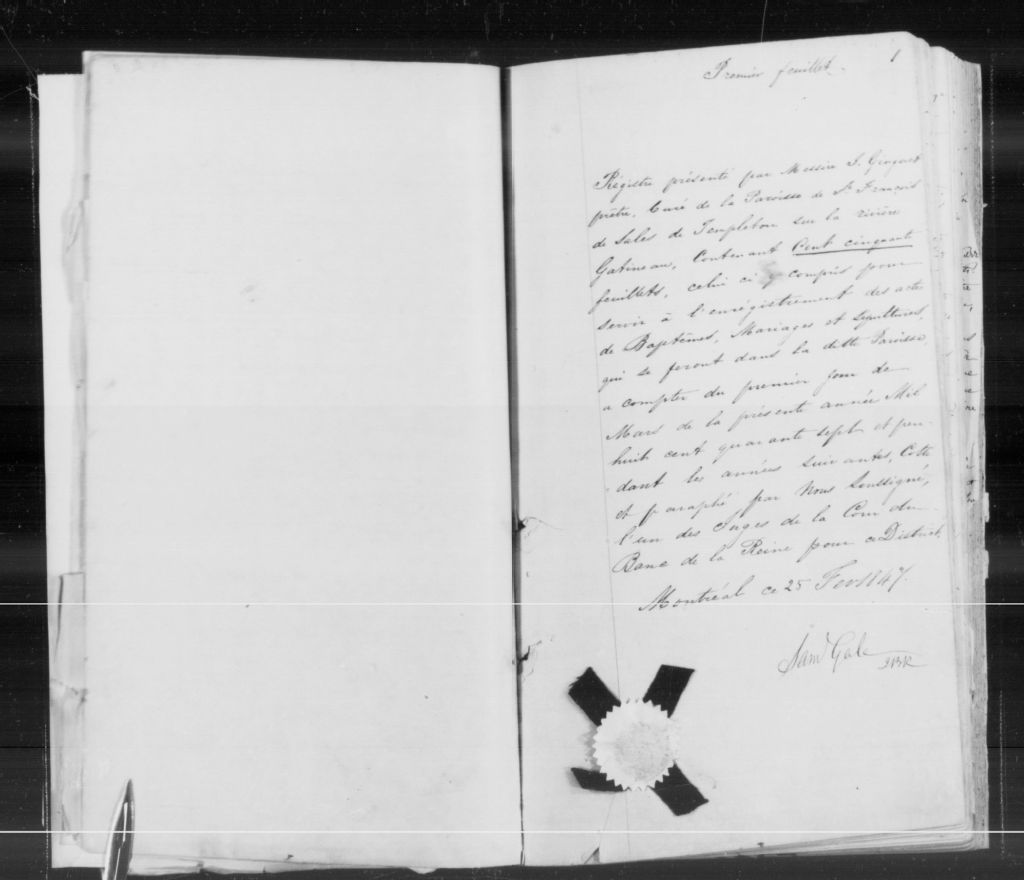 1
Premier feuillet.
Régistre présenté par Messire J. Ginguet
prêtre, Curé de la Paroisse de St François
de Sales de Templeton sur la rivière
Gatineau, Contenant Cent cinquante
feuillets, celui ci y compris pour
servir à l'enrégistrement des actes
de Baptêmes, Mariages et sépultures,
qui se feront dans la ditte Paroisse,
a compter du premier jour de
Mars de la présente année Mil
huit cent quarante sept et pen-
dant les années suivantes, Cotté
et paraphé par Nous Soussigné,
l'un des Juges de la Cour du
Banc de la Reine pour ce District,
Montréal ce 25 Fev 1847.
Saml Gale
JBR